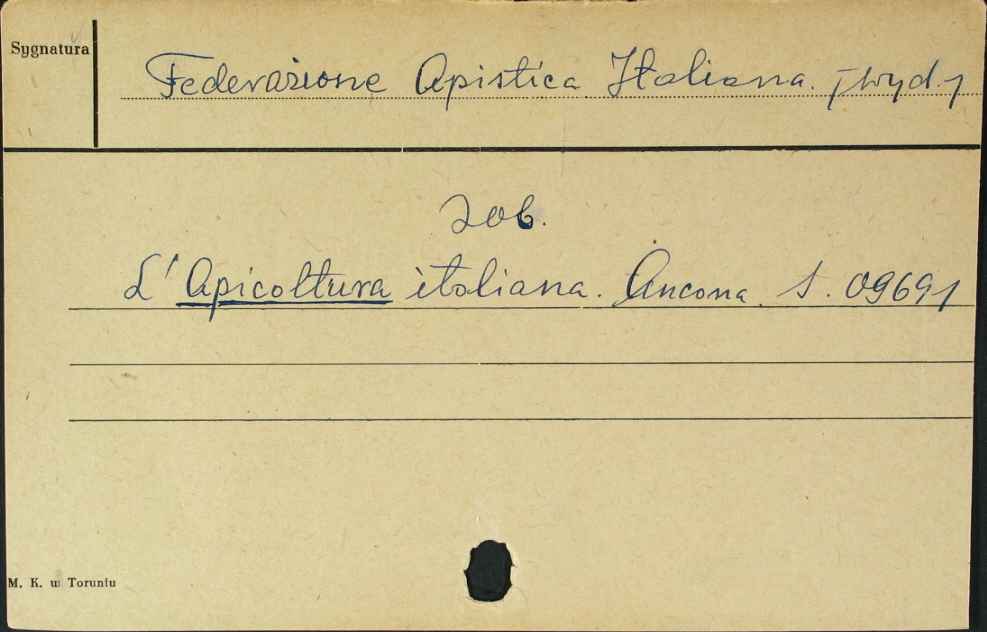 Sygnatura
Federazione Apistica Italiana. [wyd.]
zob.
L'Apicoltura italiana. Ancona. S. 09691
M. K. w Toruniu